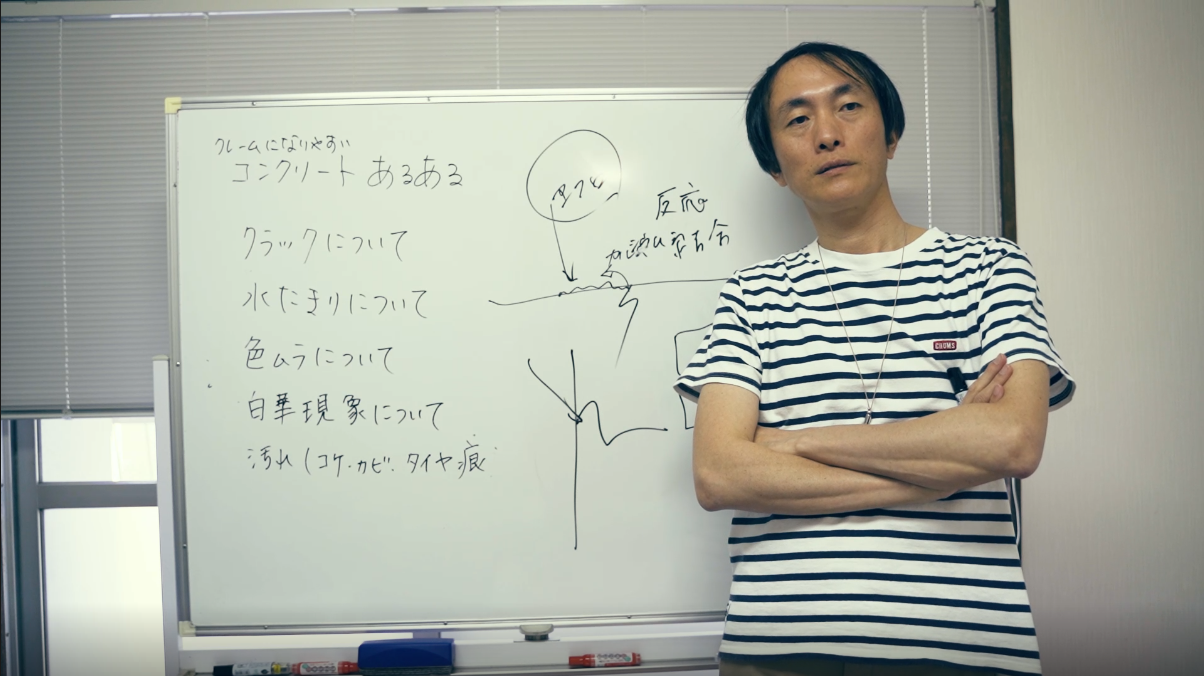 クレームになりやすい
コンクリートあるある
クラックについて
水たまりについて
色ムラについて
白華現象について
汚れ(コケ・カビ・タイヤ痕
反応
CHUMS